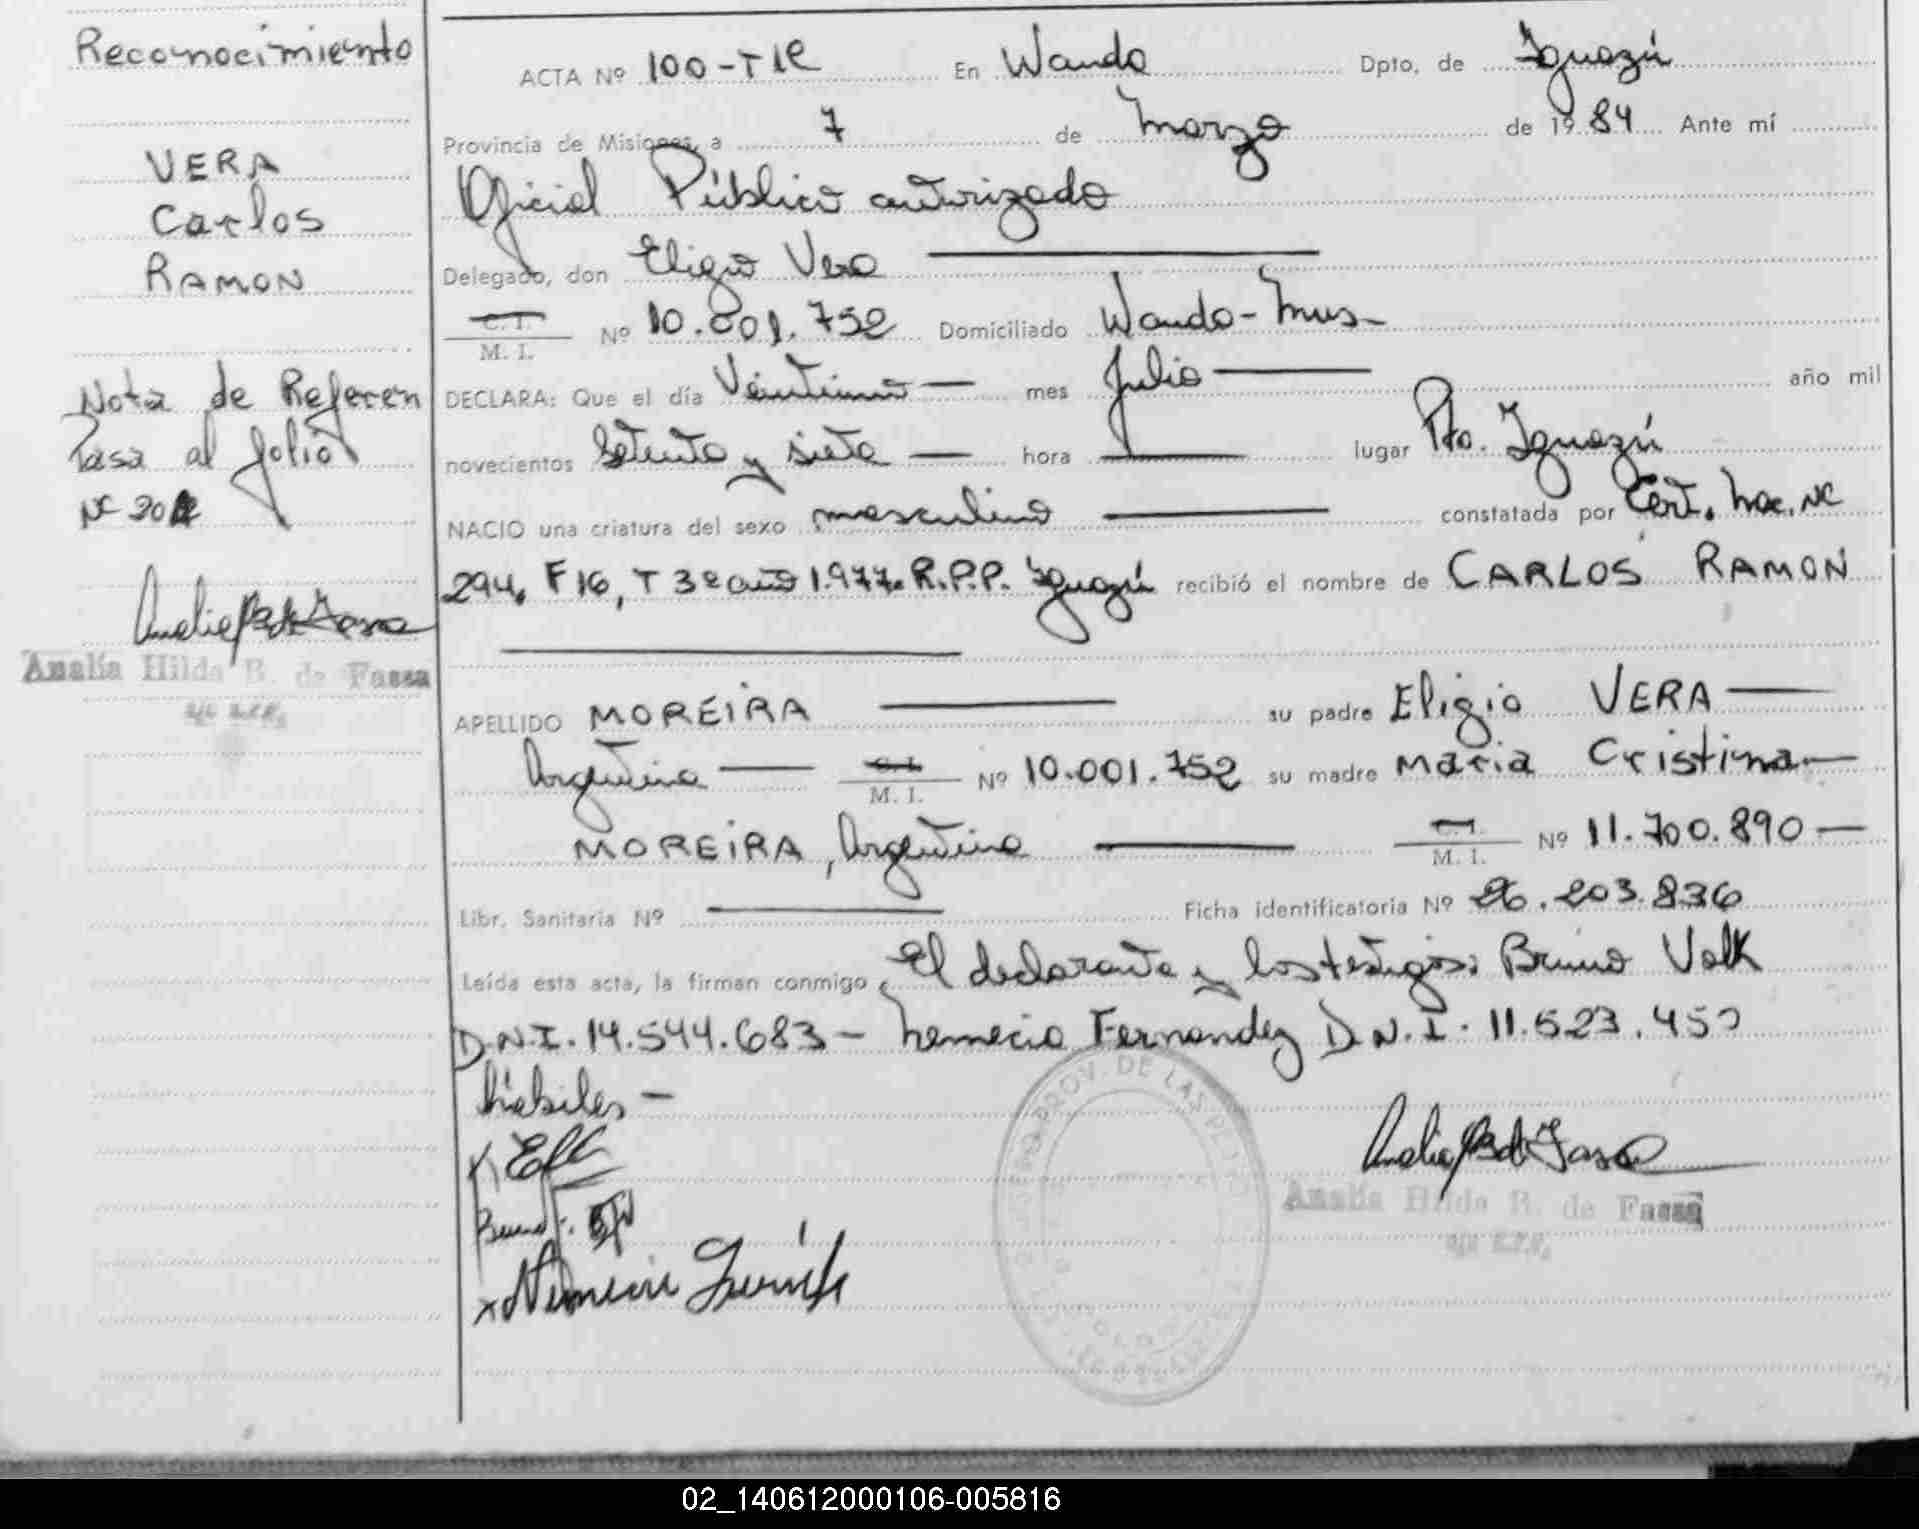 Reconocimiento
VERA
Carlos
RAMON
Nota de Referen
Pasa al folio
Nº 20
Analía Hilda B. de Fassa
ACTA Nº 100-T1º En Wanda Dpto. de Iguazú
Provincia de Misiones, a 7 de Marzo de 1984 Ante mí
Oficial Público autorizado
Delegado, don Eligio Vera
C. I.
M. I. Nº 10.001.752 Domiciliado Wanda-Mnes-
DECLARA: Que el día Veintiuno mes Julio año mil
novecientos Setenta y siete hora lugar Pto. Iguazú
NACIO una criatura del sexo masculino constatada por Cert. Nac. Nº
294, F 16, T 3º año 1.977. R.P.P. Iguazú recibió el nombre de CARLOS RAMON
APELLIDO MOREIRA su padre Eligio VERA
Argentina C. I. M. I. Nº 10.001.752 su madre Maria Cristina
MOREIRA, Argentina C. I. M. I. Nº 11.700.890
Libr. Sanitaria Nº Ficha identificatoria Nº 26.203.836
Leída esta acta, la firman conmigo, El declarante y los testigos: Bruno Volk
D.N.I. 14.544.683 - Nemecio Fernandez D.N.I. 11.523.45
hábiles -
PROV. DE LAS
Analía Hilda B. de Fassa
02_140612000106-005816